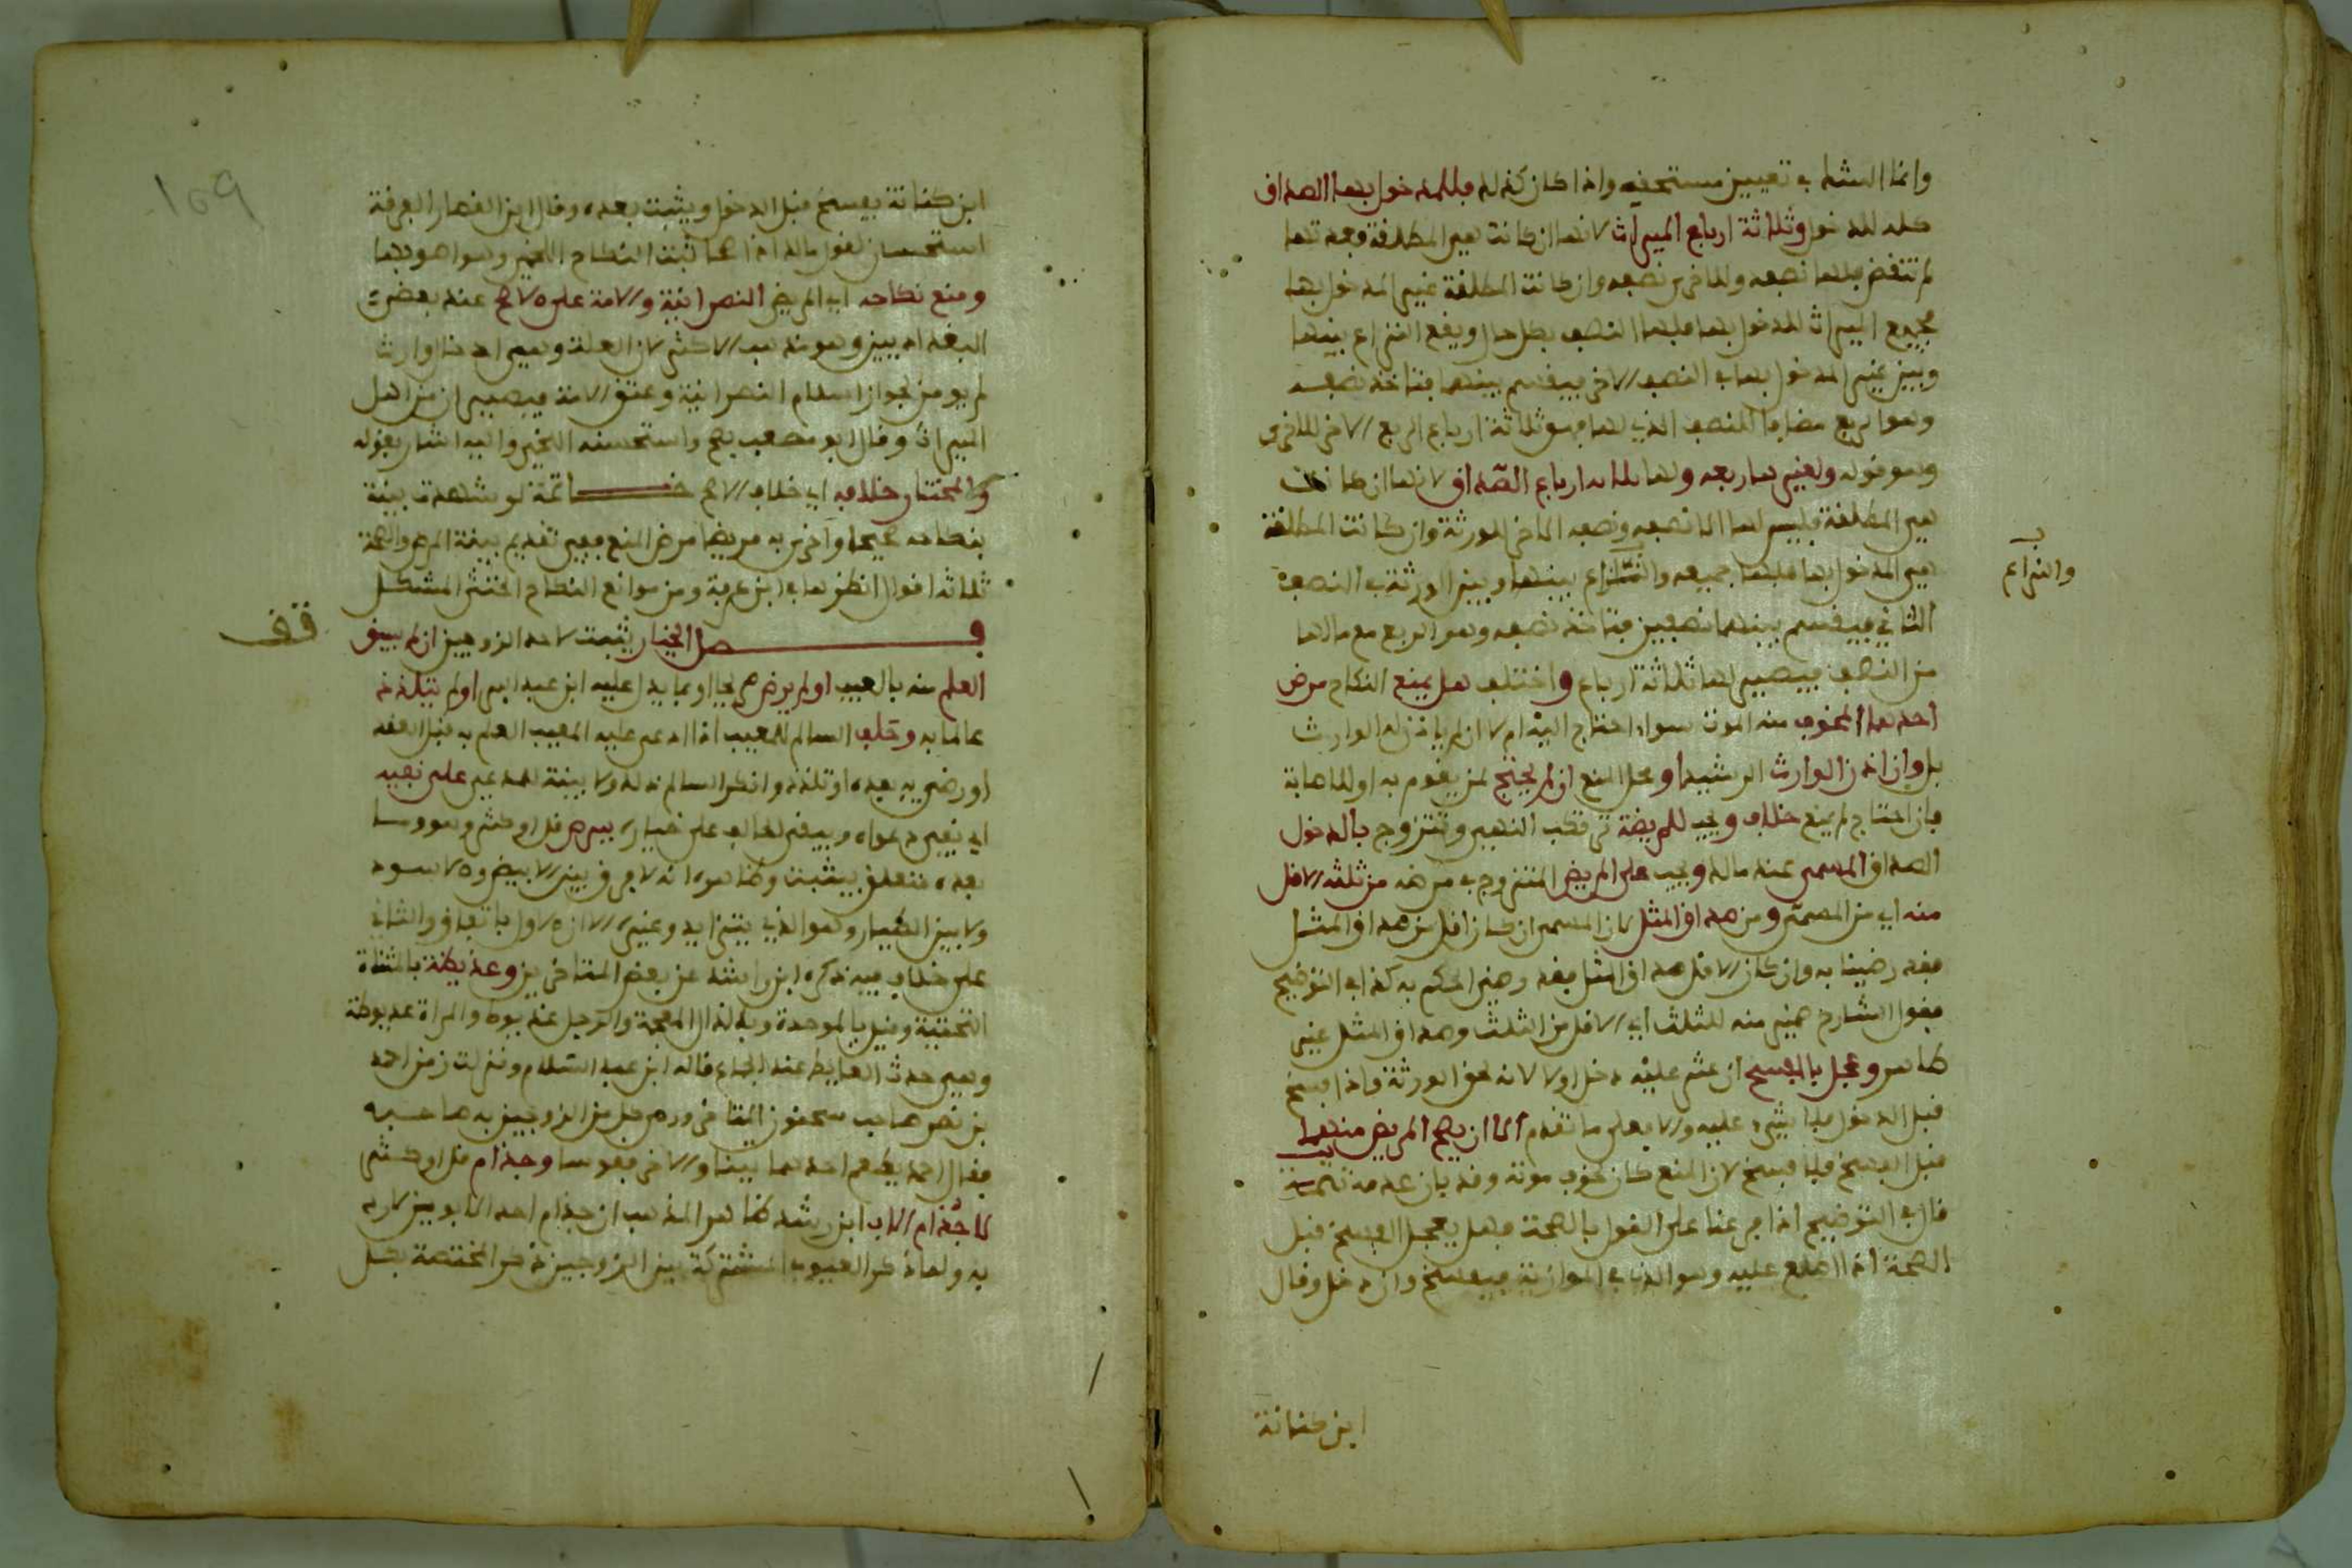 وانما الشك في تعيين مستحقه واذا كان كذلك فللمدخول بها الصداق
كله للدخول وثلاثة ارباع الميراث لانها ان كانت هي المطلقة فعدتها
لم تنقض فلها نصفه وللاخرى نصفه وان كانت المطلقة غير المدخول بها
فجميع الميراث للمدخول بها فلها النصف بكل حال ويقع النزاع بينها
وبين غير المدخول بها في النصف الاخر فيقسم بينهما فتاخذ نصفه
وهو الربع مضافا للنصف الذي لها فهو ثلاثة ارباع الربع الاخر للاخرى
وهو قوله ولغيرها ربعه ولها ثلاثة ارباع الصداق لانها ان كانت
هي المطلقة فليس لها الا نصفه ونصفه الاخر للورثة وان كانت المطلقة
هي المدخول بها فلها جميعه والنزاع بينها وبين الورثة في النصف
والنزاع
الثاني فيقسم بينهما نصفين فتاخذ نصفه وهو الربع مع مالها
من النصف فيصير لها ثلاثة ارباع واختلف هل يمنع النكاح مرض
احدهما المخوف منه الموت سواء احتاج اليه ام لا ان لم ياذن له الوارث
بل وان اذن الوارث الرشيد او محل المنع ان لم يحتج لمن يقوم به او للاصابة
فان احتاج لم يمنع خلاف ويجب للمريضة تزوجت بالدخول
الصداق المسمى عند مالك ويجب على المريض المتزوج في مرضه من ثلثه الاقل
منه اي من المسمى ومن صداق المثل لان المسمى ان كان اقل من صداق المثل
فقد رضينا به وان كان الاقل صداق المثل فقد رضي الحكم به كذا في التوضيح
فقول الشارح ضمير منه للثلث اي الاقل من الثلث وصداق المثل غير
ظاهر وعجل بالفسخ ان عثر عليه دخل اولا لانه لحق الورثة واذا فسخ
قبل الدخول فلا شيء عليه والا فعلى ما تقدم الا ان يصح المريض منهما
قبل الفسخ فلا فسخ لان المنع كان لخوف موته وقد بان عدمه تتمة
قال في التوضيح اذا فرعنا على القول بالصحة فهل يعجل الفسخ قبل
الصحة اذا اطلع عليه وهو الذي في الموازية فيفسخ وان دخل وقال
ابن كنانة
ابن كنانة يفسخ قبل الدخول ويثبت بعده وقال ابن القصار الفرقة
استحسان لقول مالك اذا صحا ثبت النكاح اللخمي وهو اصوبها
ومنع نكاحه اي المريض النصرانية والامة على الاصح عند بعض
البغداديين وهو مذهب الاكثر لان العلة وهي ادخال وارث
لم يومن لجواز اسلام النصرانية وعتق الامة فيصيران من اهل
الميراث وقال ابو مصعب يصح واستحسنه اللخمي واليه اشار بقوله
والمختار خلافه اي خلاف الاصح خاتمة لو شهدت بينة
بنكاحه صحيحا واخرى به مريضا مرض المنع ففي تقديم بينة المرض والصحة
ثلاثة اقوال انظرها في ابن عرفة ومن موانع النكاح الخنثى المشكل
فصل الخيار يثبت لاحد الزوجين ان لم يسبق
قف
العلم منه بالعيب او لم يرض صريحا او بما يدل عليه ابن عبد البر او لم يتلذذ
عالما به وحلف السالم للمعيب اذا ادعى عليه المعيب العلم به قبل العقد
او رضي به بعده او تلذذ وانكر السالم ذلك ولا بينة للمدعي على نفيه
اي نفي دعواه ويبقى الحالف على خياره ببرص قل او كثر وهو وما
بعده متعلق بيثبت وظاهره انه لا فرق بين الابيض والاسود
ولا بين الكثير وهو الذي يتزايد وغيره الا ان الاول باتفاق والثاني
على خلاف فيه ذكره ابن راشد عن بعض المتاخرين وعذيطة بالمثناة
التحتية وقيل بالموحدة وبالذال المعجمة والرجل عذيوط والمراة عذيوطة
وهي حدث الغايط عند الجماع قاله ابن عبد السلام ونزلت زمن احمد
بن نصر صاحب سحنون التقا ورمى كل من الزوجين به صاحبه
فقال احمد يطعم احدهما تينا والاخر فقوسا وجذام قل او كثر
لا جذام الاب ابن رشد ظاهر المذهب ان جذام احد الابوين لا رد
به ولما ذكر العيوب المشتركة بين الزوجين ذكر المختصة بكل